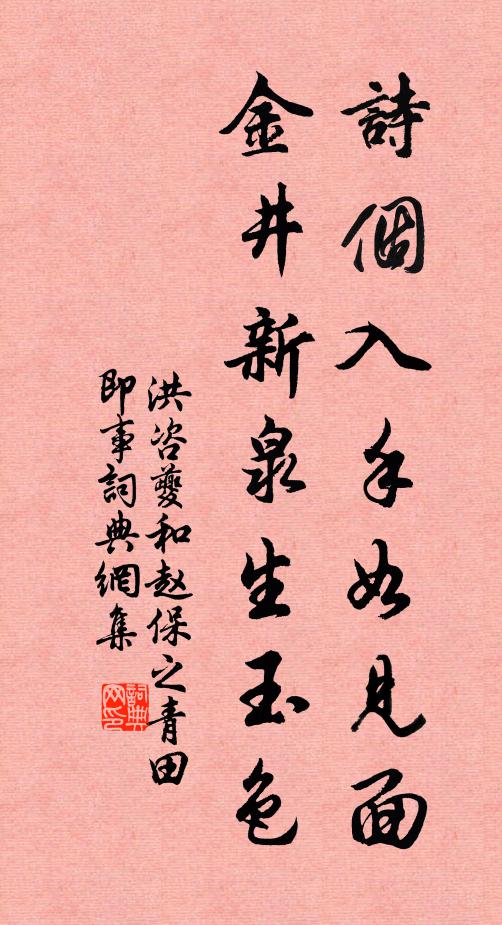 詩個入手如見面
金井新泉生玉色
洪咨夔和赵保之青田
即事詞典網集
詞典网印